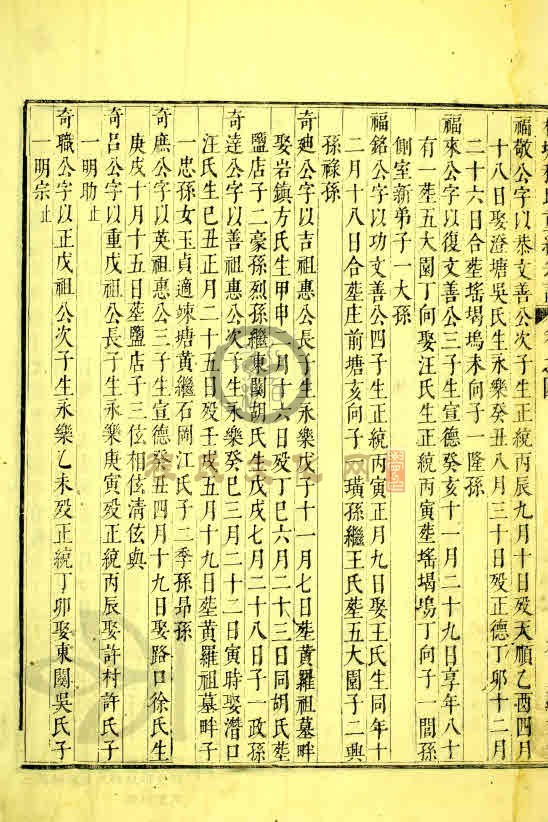 福敬公字以恭文善公次子生正統丙辰九月十日殁天順乙酉四月
十八日娶澄塘吳氏生永樂癸丑八月三十日殁正德丁卯十二月
二十六日合塟塢未向子一隆孫
福來公字以復文善公三子生宣德癸亥十一月二十九日享年八十
有一塟五大園丁向娶汪氏生正統丙寅塟塢丁向子一閻孫
側室新弟子一大孫
福銘公字以功文善公四子生正統丙寅正月九日娶王氏生同年十
二月十八日合塟庄前塘亥向子璜孫繼王氏塟五大園子二興
孫祿孫
奇廸公字以吉祖惠公長子生永樂戊子十一月七日塟黃羅祖墓畔
娶岩鎮方氏生甲申月十六日殁丁巳六月二十三日同胡氏塟
鹽店子二豪孫烈孫繼東關胡氏生戊戌七月二十八日子一政孫
奇達公字以善祖惠公次子生永樂癸巳三月二十二日寅時娶潛口
汪氏生己丑正月二十五日殁壬戌五月十九日塟黃羅祖墓畔子
一忠孫女玉貞適竦塘黃繼石岡江氏子二季孫昻孫
奇庶公字以英祖惠公三子生宣德癸丑四月十九日娶路口徐氏生
庚戌十月十五日塟鹽店子三伭相伭清伭與
奇呂公字以重戊祖公長子生永樂庚寅殁正統丙辰娶許村許氏子
一明助止
奇職公字以正戊祖公次子生永樂乙未殁正統丁卯娶東關吳氏子
一明宗止